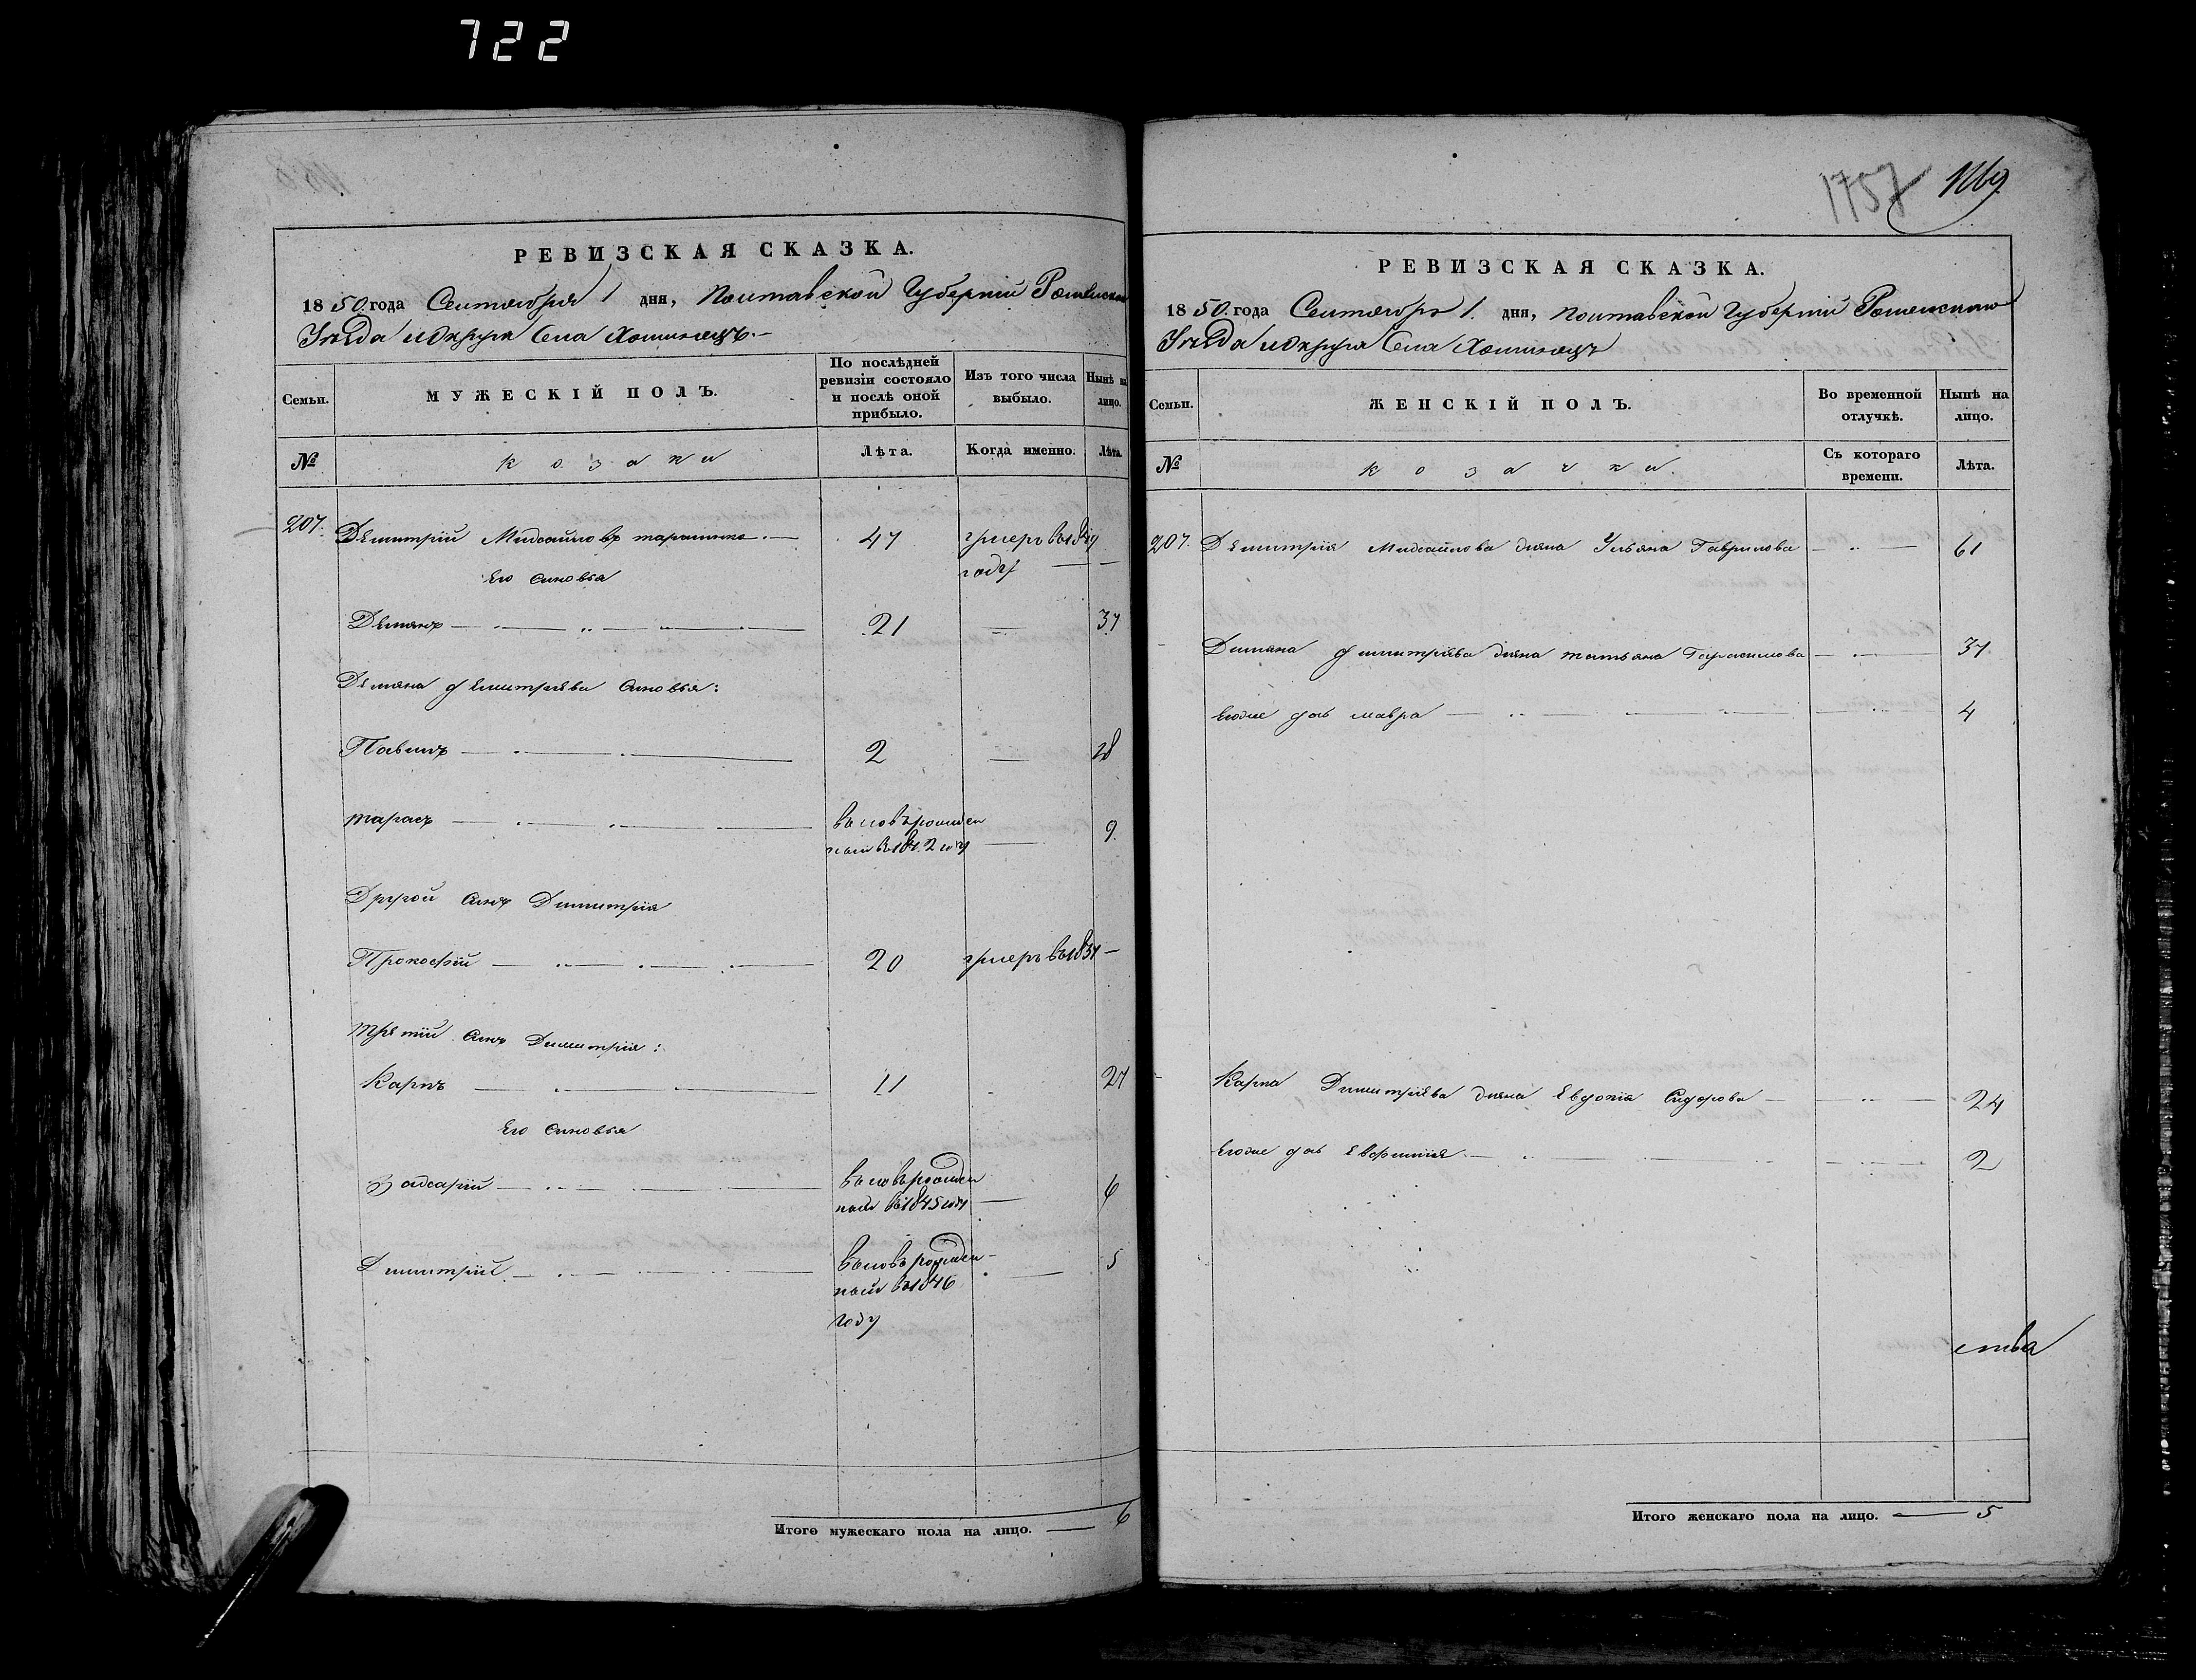 722
1757 1169
РЕВИЗСКАЯ СКАЗКА.
1850 года Сентября 1 дня, Полтавской Губерніи Роменского
Уѣзда и округа Села Хоминецъ.-
Семьи.
МУЖЕСКІЙ ПОЛЪ.
По послѣдней ревизіи состояло и послѣ оной прибыло.
Изъ того числа выбыло.
Нынѣ на лицо.
№
козаки
Лѣта.
Когда именно.
Лѣта.
207. Демитрій Михайловъ 47 умеръ въ
году
Его синовья
Демянъ 21 37
Демяна Демитріева синовья:
Павелъ 2 18
Тарасъ вновь рожден 9.
ный
Другой синъ Димитрія
Прокофій 20 умеръ въ
Третій синъ Димитрія:
Карпъ 11 27
Его синовья
Захарій вновь рожден 6
ный въ 1845 году
Димитрій вновь рожден- 5
ный въ 1846
году
Итого мужескаго пола на лицо. 6
РЕВИЗСКАЯ СКАЗКА.
1850 года Сентября 1. дня, Полтавской Губерніи Роменского
Уѣзда и округа Села Хоминецъ
Семьи.
ЖЕНСКІЙ ПОЛЪ.
Во временной отлучкѣ.
Нынѣ на лицо.
№
козачки.
Съ котораго времени.
Лѣта.
207. Демитрія Михайлова жена Ульяна Гаврилова 61
Демяна Демитріева жена Татьяна Герасимова 37
Его же дочь Мавра 4
Карпа Димитріева жена Евдокія Сидорова 24
Его же дочь 2
ства
Итого женскаго пола на лицо. 5